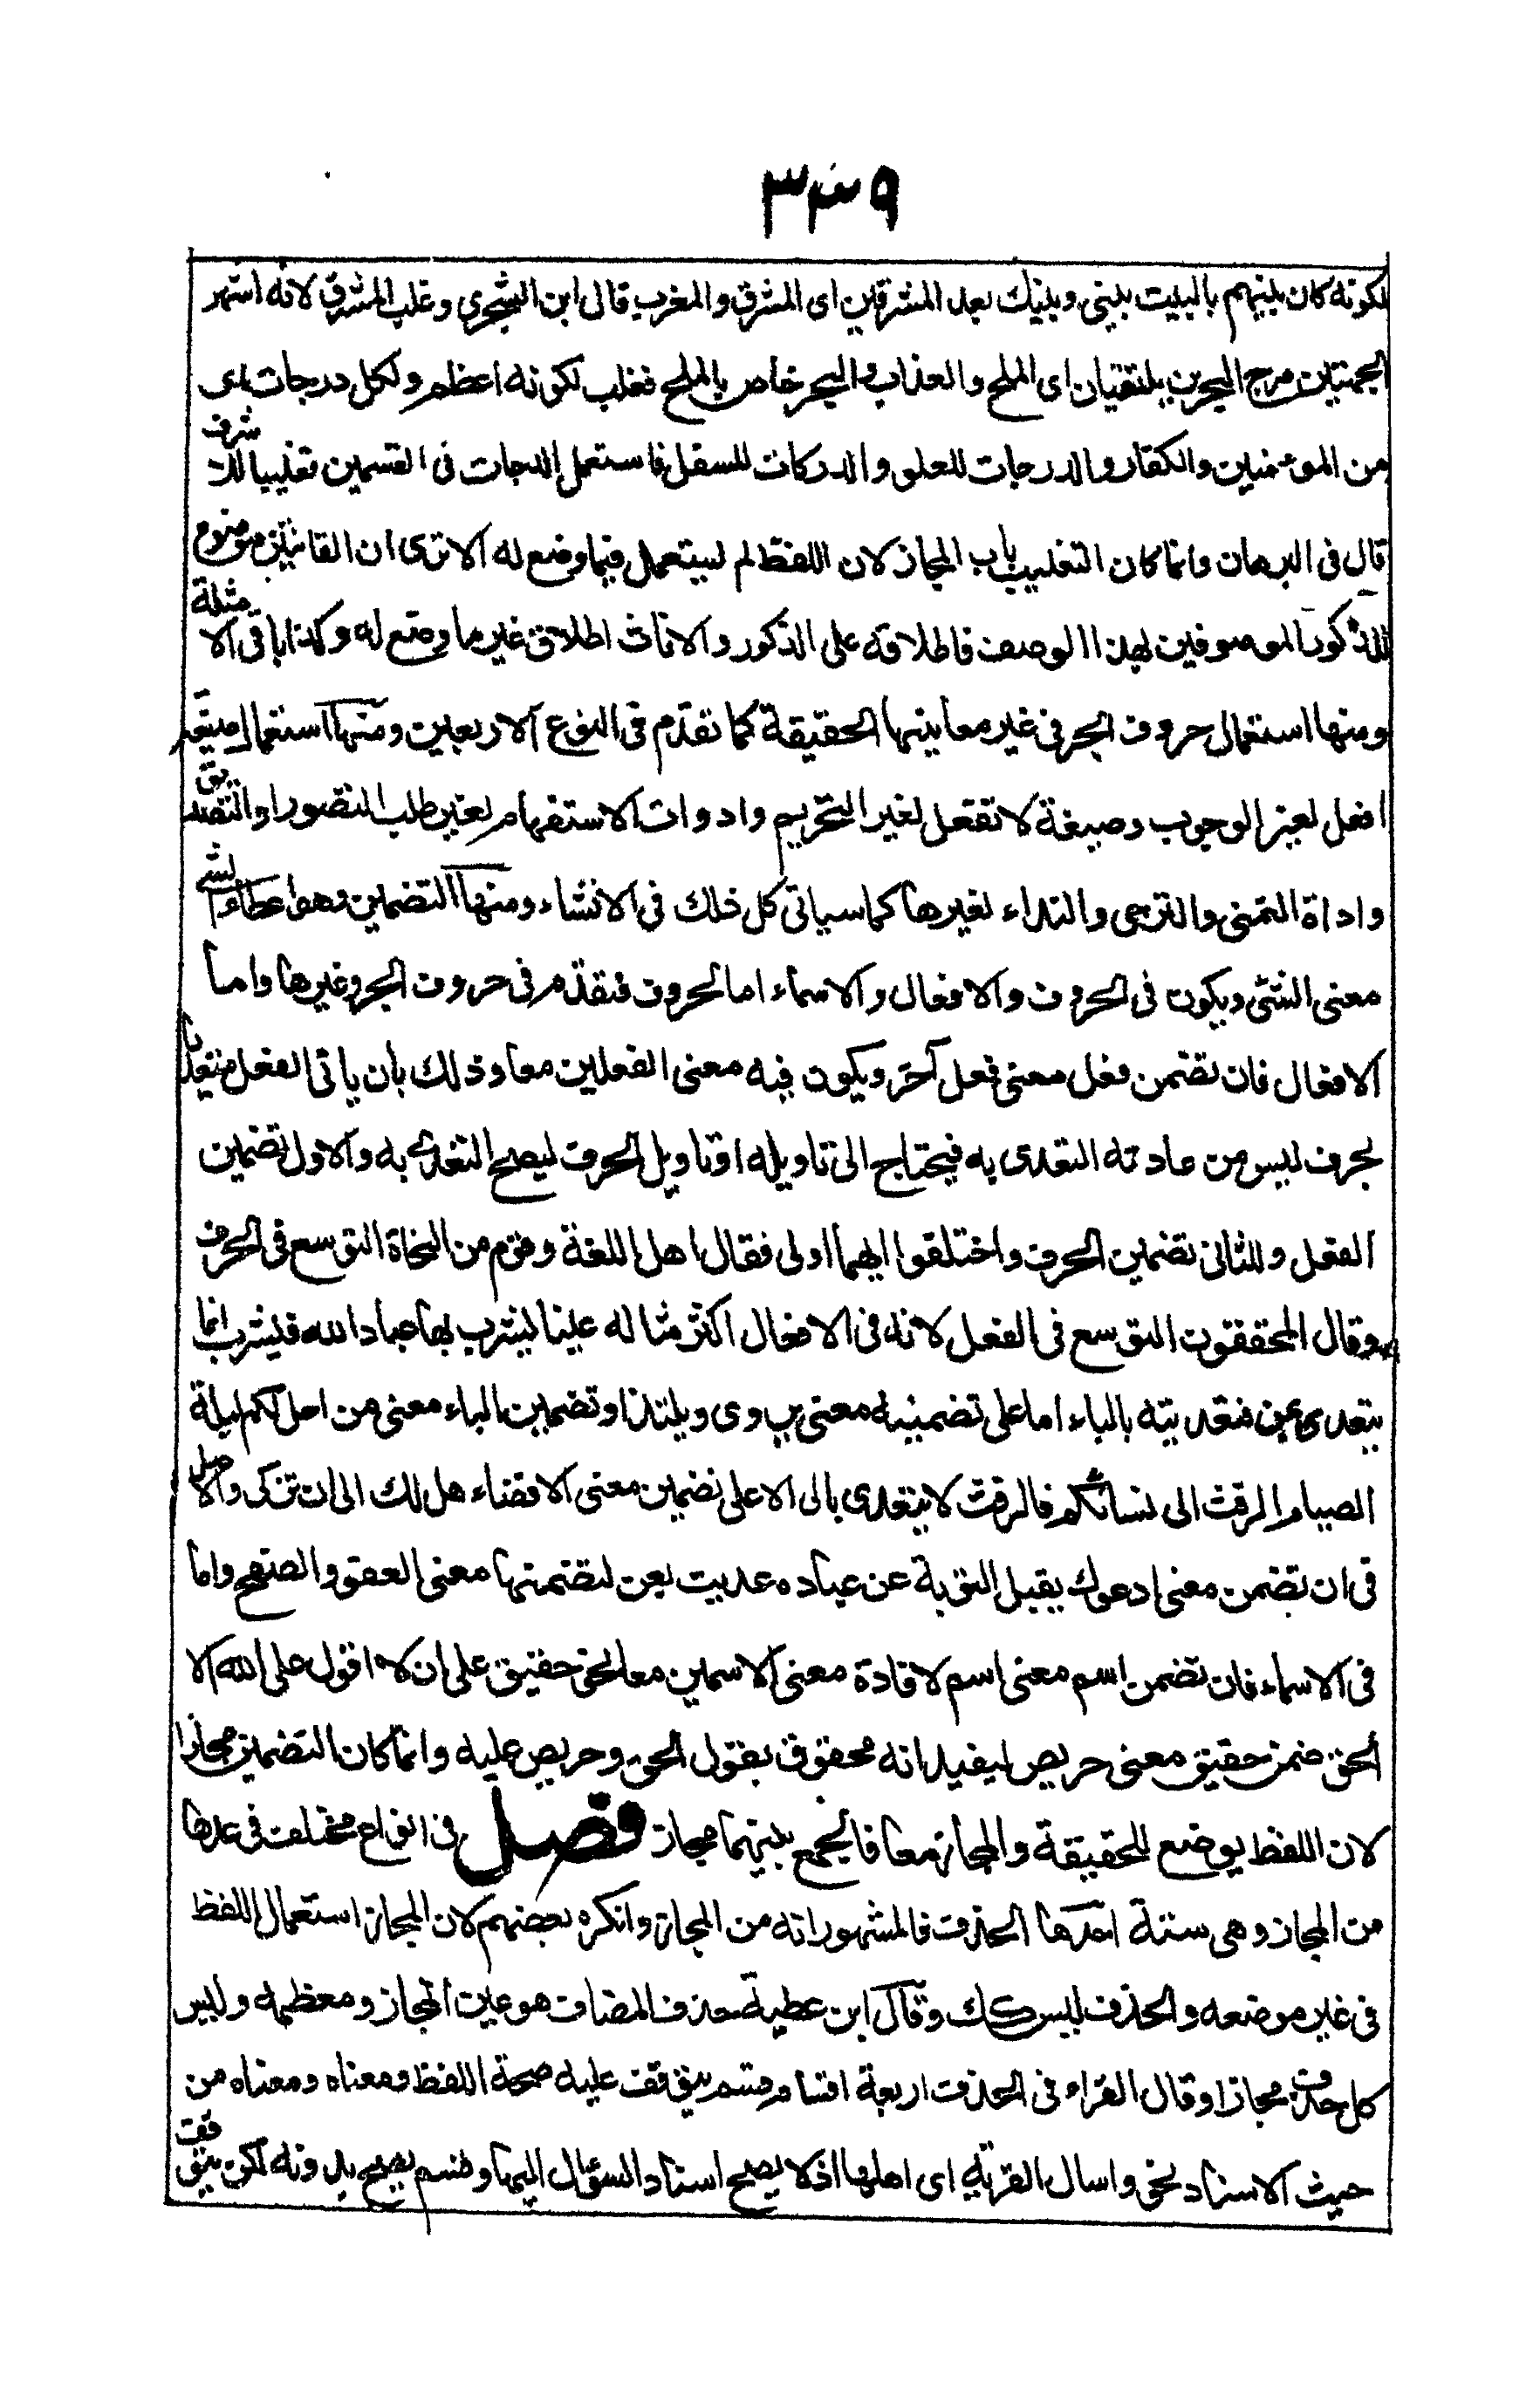 ٣٣٩
لكونه كان بينهم يا ليت بيني وبينك بعد المشرقين اى المشرق والمغرب قال ابن الشجري وغلب المشرق لانه اشهر
الجهتين مرج البحرين يلتقيان اى الملح والعذاب والبحر خاص بالملح فغلب لكونه اعظم ولكل درجات اى
من المومنين والكفار والدرجات للعلو والدركات للسفل فاستعمل الدجات فى القسمين تغليبا للاشرف
قال فى البرهان وانما كان التغليب باب المجاز لان اللفظ لم يستعمل فيما وضع له الا ترى ان القانتين موضوع
للذكور الموصوفين بهذا الوصف فاطلاقه على الذكور والاناث اطلاق غير ما وضع له وكذا باقى الامثلة
ومنها استعمال حروف الجر فى غير معانيها الحقيقة كما تقدم فى النوع الاربعين ومنها استعمال صيغة
افعل لغير الوجوب وصيغة لا تفعل لغير التحريم وادوات الاستفهام لغير طلب التصور او التصديق
واداة التمنى والترجى والنداء لغيرها كما سياتى كل ذلك فى الانشاء ومنها التضمين وهو اعطاء الشى
معنى الشئ ويكون فى الحروف والافعال والاسماء اما الحروف فتقدم فى حروف الجر وغيرها واما
الافعال فان تضمن فعل معنى فعل آخر ويكون فيه معنى الفعلين معا وذلك بأن ياتى الفعل متعديا
بحرف ليس من عادته التعدى به فيحتاج الى تاويله اوتاويل الحرف ليصح التعدى به والاول تضمين
الفعل وللثانى تضمين الحرف واختلفوا ايهما اولى فقال اهل اللغة وقوم من النحاة التوسع فى الحرف
وقال المحققون التوسع فى الفعل لانه فى الافعال اكثر مثاله عينا يشرب بها عباد الله فيشرب انما
يتعدى بمن فتعديته بالباء اما على تضمينه معنى يروى ويلتذ اوتضمين الباء معنى من احل لكم ليلة
الصيام الرفث الى نسائكم فالرفث لا يتعدى بالى الا على تضمين معنى الافضاء هل لك الى ان تزكى والاصل
فى ان تضمن معنى ادعوك يقبل التوبة عن عباده عديت بعن لتضمنها معنى العفو والصفح واما
فى الاسماء فان تضمن اسم معنى اسم لافادة معنى الاسمين معا نحو حقيق على ان لا اقول على الله الا
الحق ضمن حقيق معنى حريص ليفيد انه محقوق بقول الحق وحريص عليه وانما كان التضمين مجازا
لان اللفظ يوضع للحقيقة والمجاز معا فالجمع بينهما مجاز فصل فى انواع مختلف فى عدها
من المجاز وهى ستة احدها الحذف فالمشهور انه من المجاز وانكره بعضهم لان المجاز استعمال اللفظ
فى غير موضعه والحذف ليس كك وقال ابن عطية حذف المضاف هو عين المجاز ومعظمه وليس
كل حذف مجازا وقال القراء فى الحذف اربعة اقسام قسم يتوقف عليه صحة اللفظ ومعناه ومعناه من
حيث الاسناد نحو واسال القرية اى اهلها اذ لا يصح اسناد السؤال اليها وقسم يصح بدونه لكن يتوقف